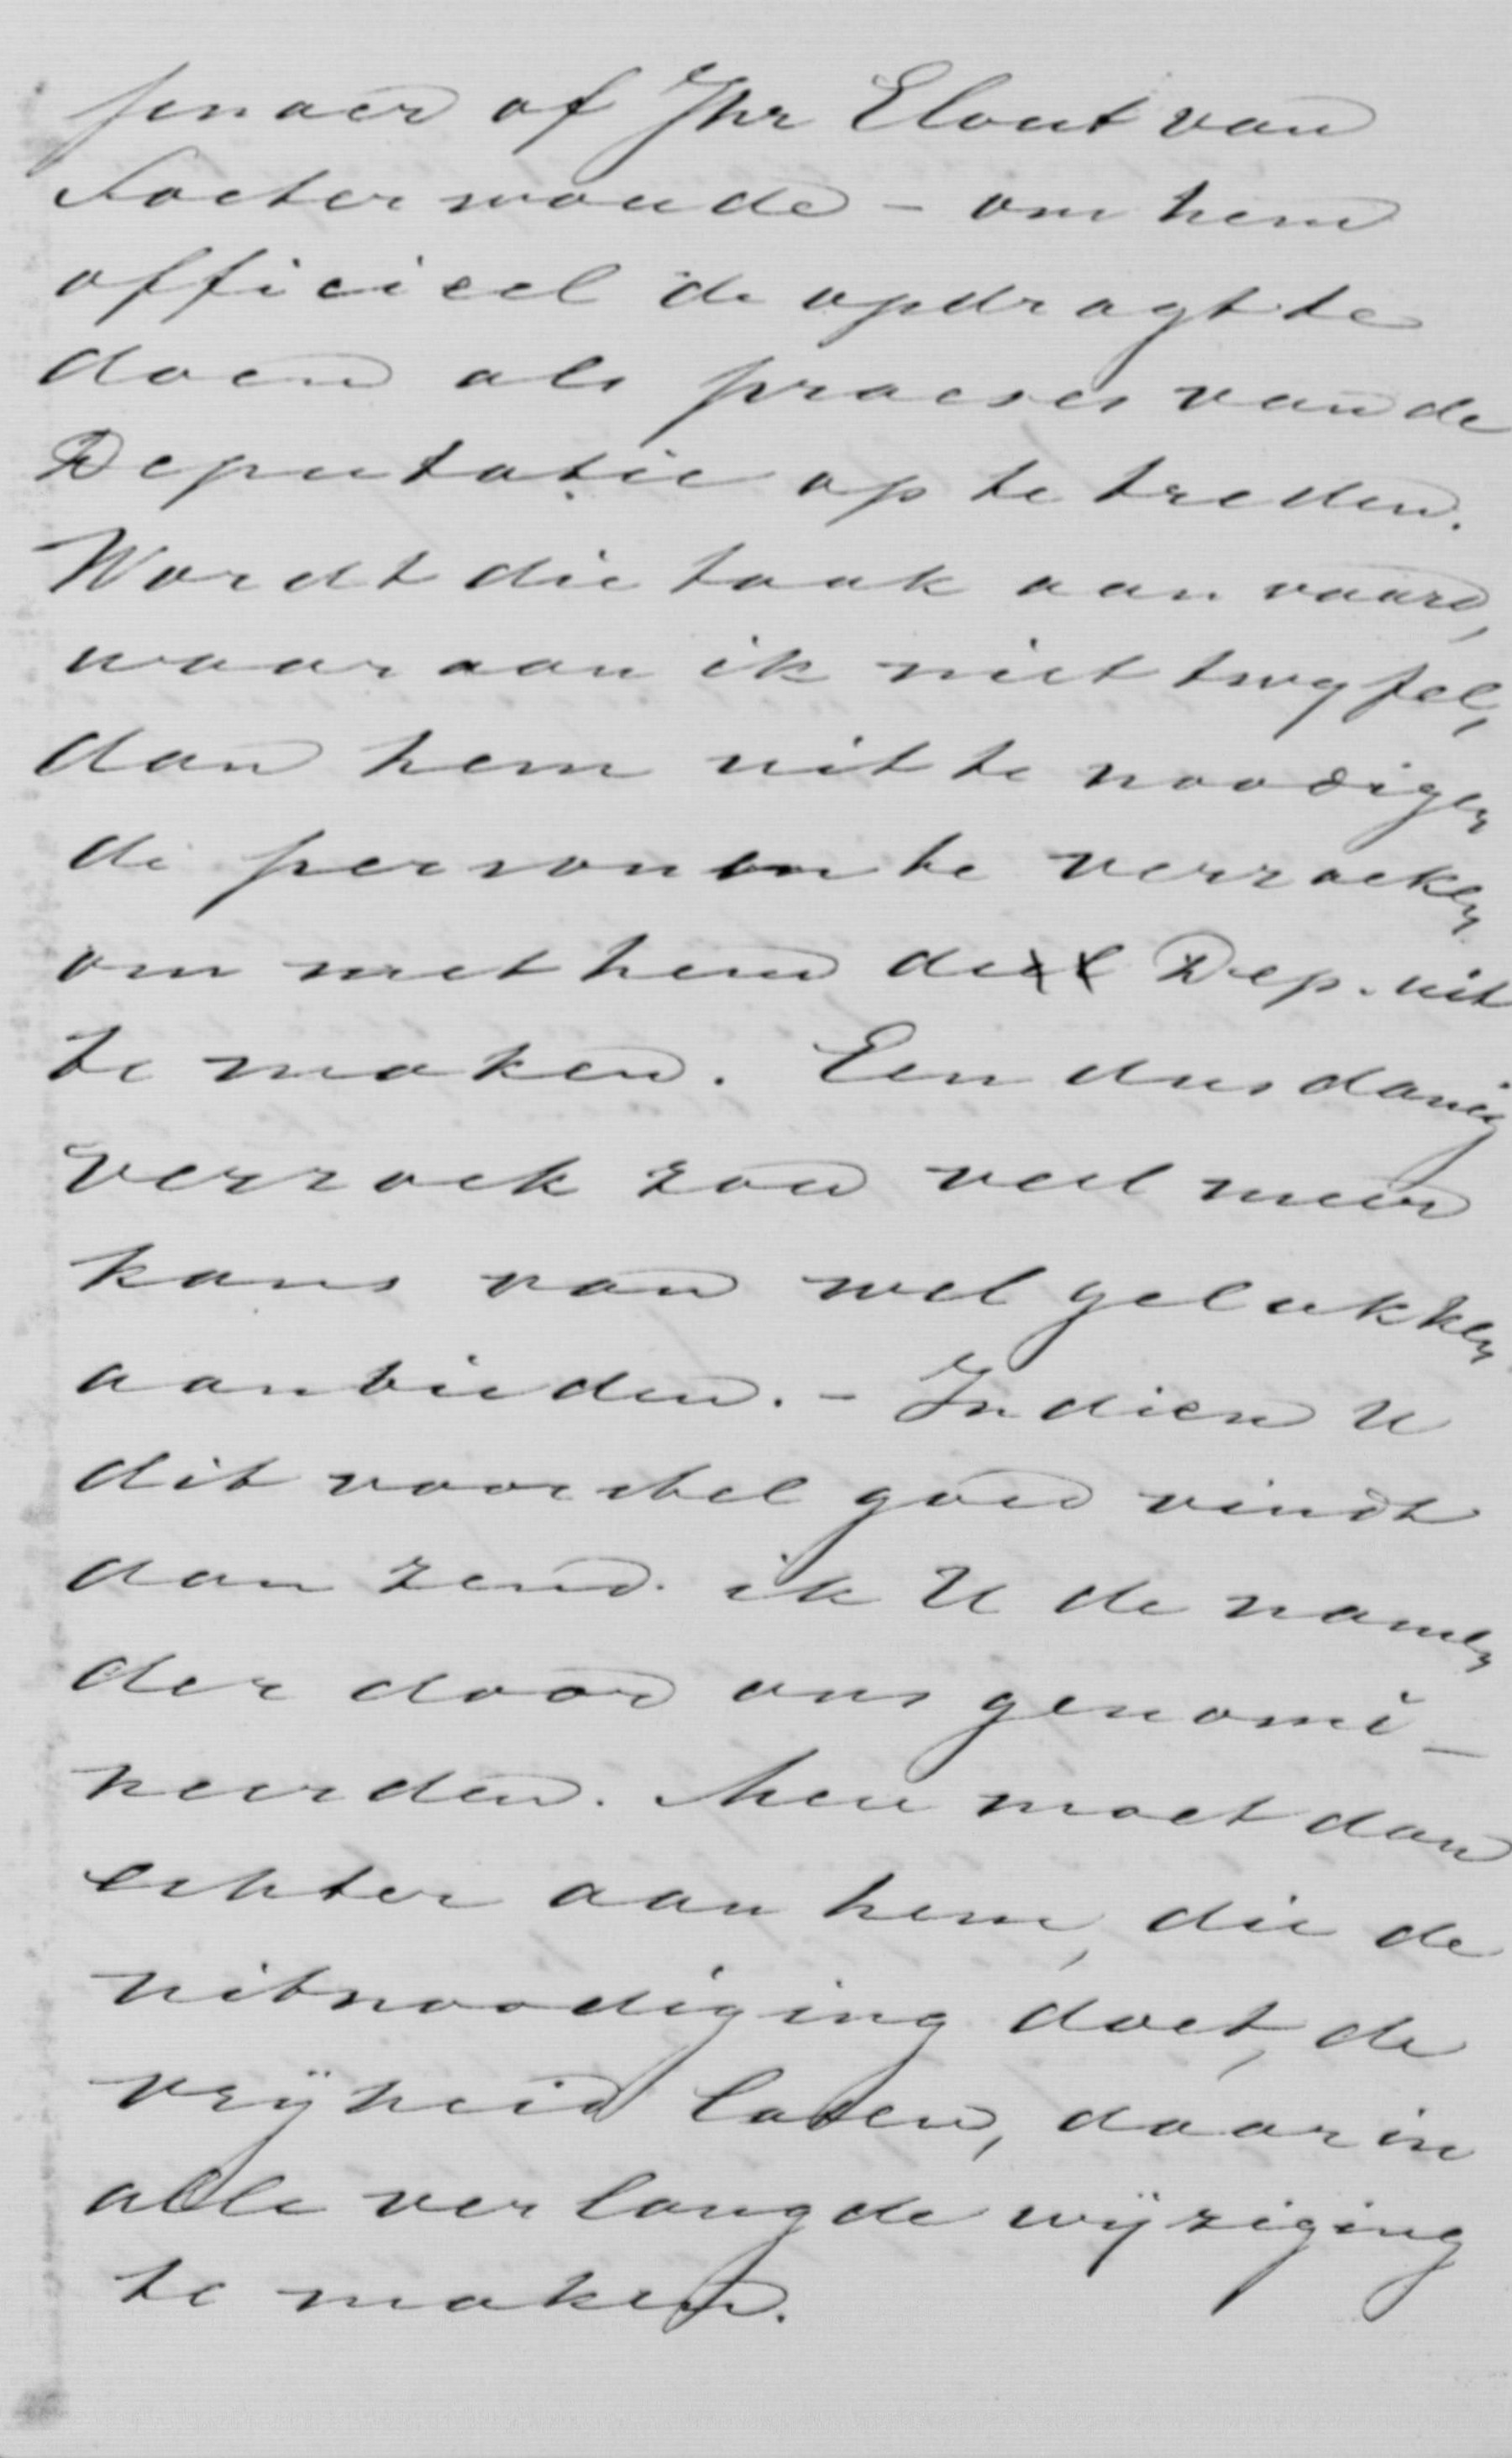 senaer of Jhr Elout van
Soeterwoude – om hem
officieel de opdragt te
doen als praeses van de
Deputatie op te treden.
Wordt die taak aanvaard,
waaraan ik niet twyfel,
dan hem uit te noodigen
de personen te verzoeken
om met hem de Dep. uit
te maken. Een dusdanig
verzoek zou veel meer
kans van wel gelukken
aanbieden. – Indien U
dit voorstel goed vindt
dan zend ik U de namen
der door ons genomi–
neerden. Men moet dan
echter aan hem, die de
uitnoodiging doet, de
vrijheid laten, daarin
alle verlangde wijziging
te maken.